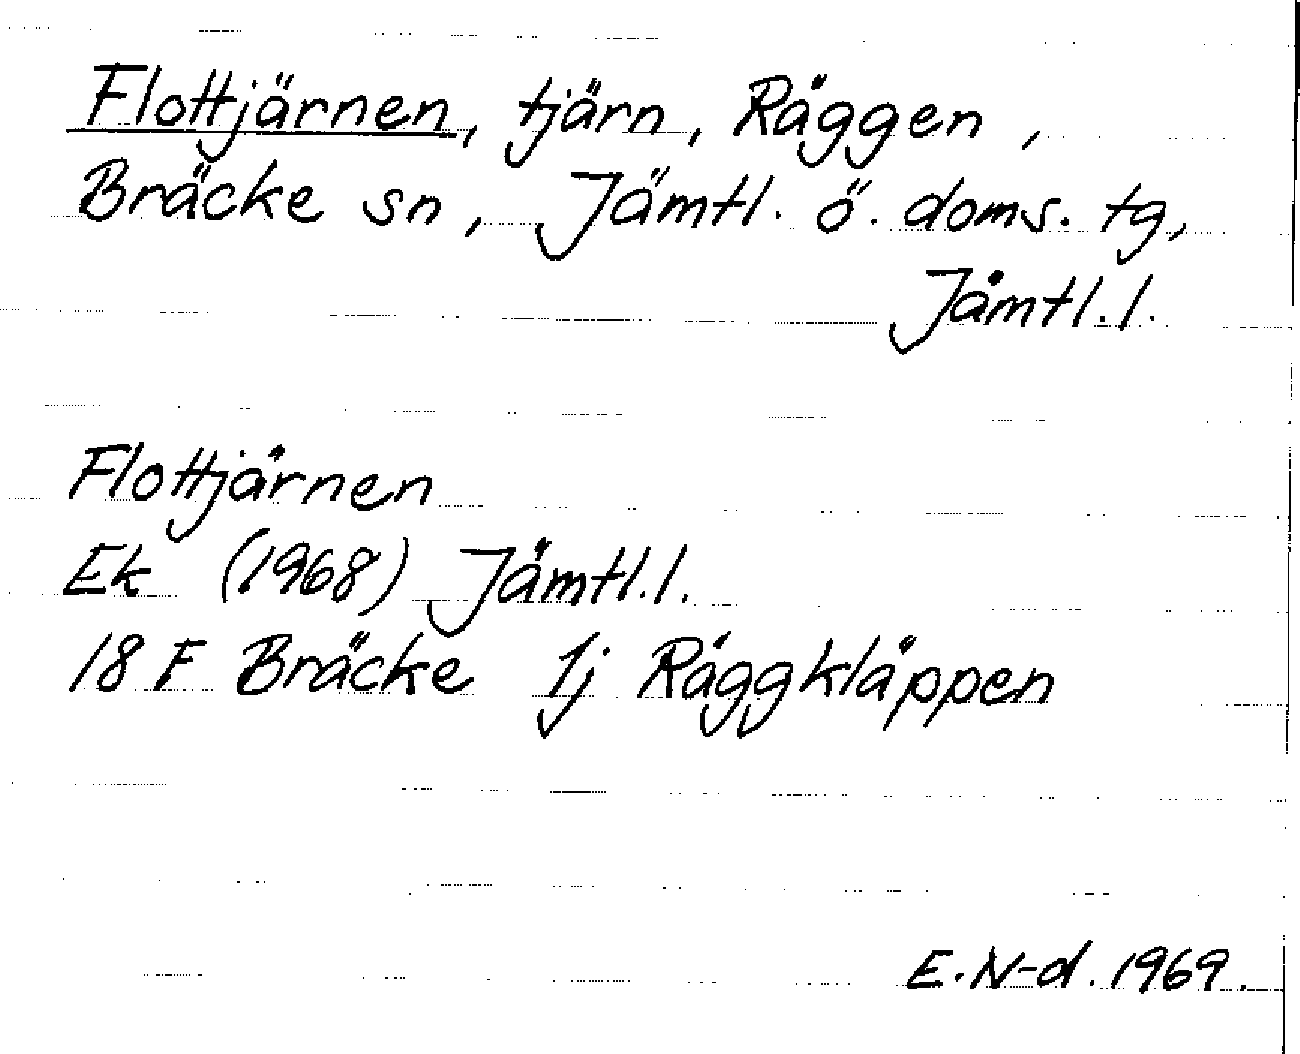 Flottjärnen, tjärn, Räggen,
Bräcke sn, Jämtl. ö. doms. tg,
Jämtl. l.
Flottjärnen
Ek (1968) Jämtl. l.
18 F Bräcke 1j Räggkläppen
E. N-d. 1969.